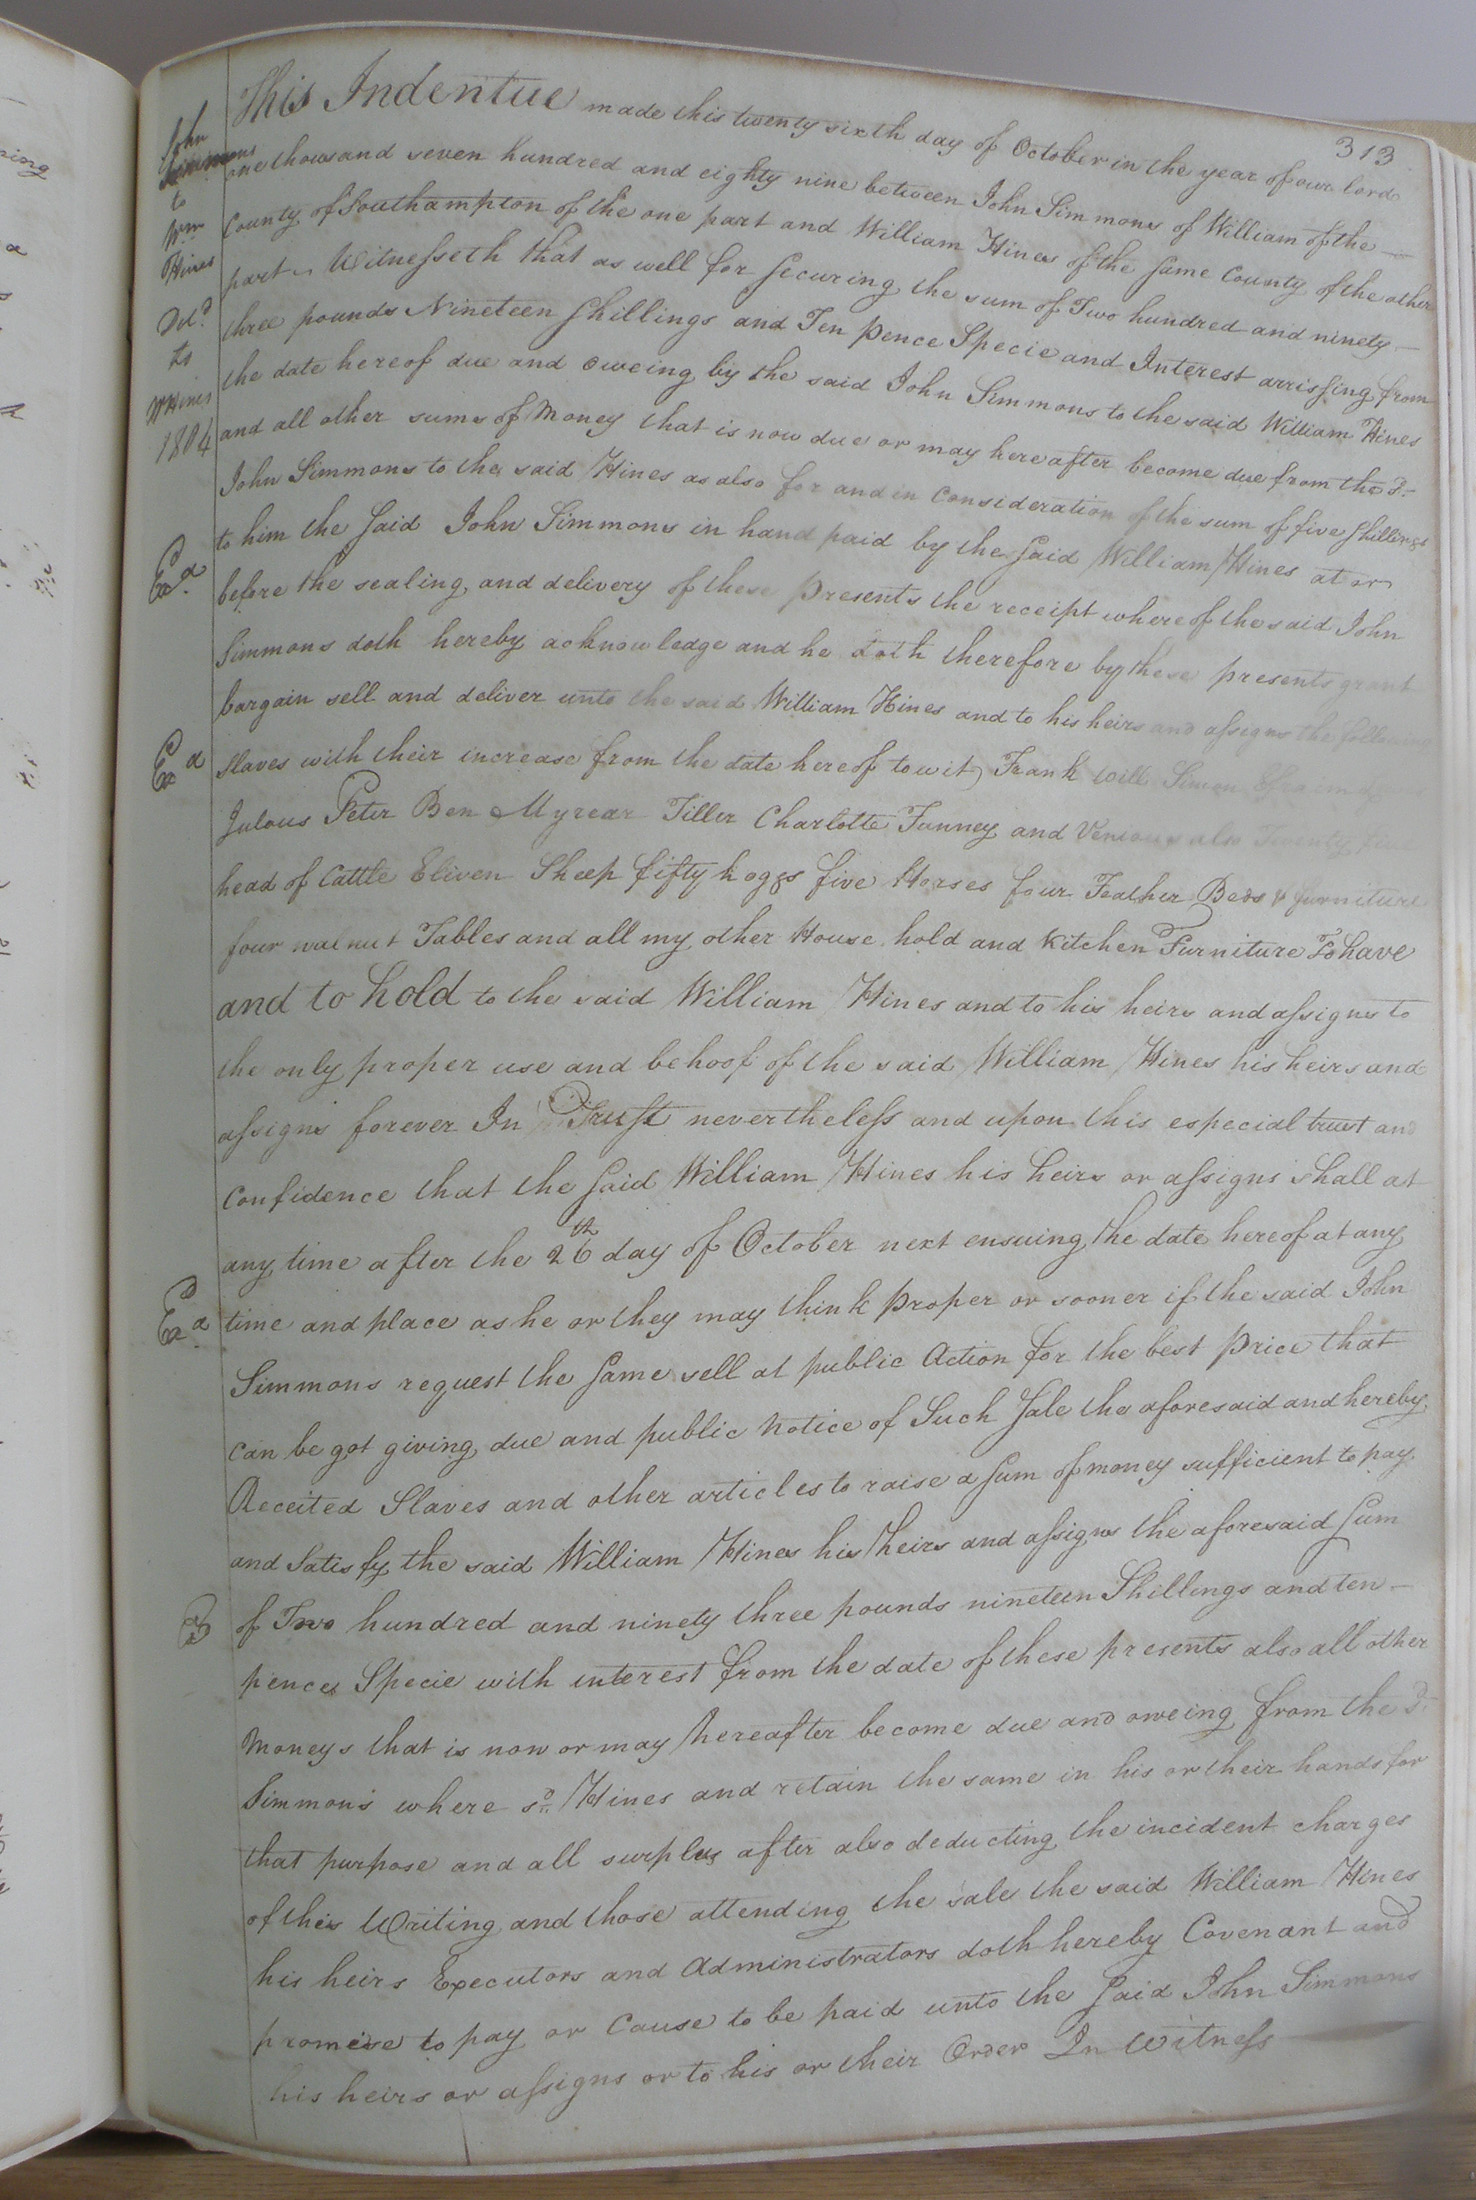 313
John
Simmons
to
Wm
Hines
Deld
to
WHines
1804
Exd
Exd
Exd
This Indentue made this twenty sixth day of October in the year of our lord
one thousand seven hundred and eighty nine between John Simmons of William of the
County of Southampton of the one part and William Hines of the same County of the other
part Witnesseth that as well for securing the sum of Two hundred and ninety
three pounds Nineteen shillings and Ten pence Specie and Interest arrissing from
the date hereof due and oweing by the said John Simmons to the said William Hines
and all other sums of Money that is now due or may hereafter become due from the sd
John Simmons to the said Hines as also for and in Consideration of the sum of five shillings
to him the said John Simmons in hand paid by the said William Hines at or
before the sealing and delivery of these presents the receipt whereof the said John
Simmons doth hereby acknowledge and he doth therefore by these presents grant
bargain sell and deliver unto the said William Hines and to his heirs and assigns the following
slaves with their increase from the date hereof towit, Frank Will Simon
Julous Peter Ben Myrear Tiller Charlotte Funney and also Twenty
head of Cattle Eliven Sheep fifty hoggs five Horses four Feather Beds & furniture
four walnut Tables and all my other House hold and Kitchen Furniture To have
and to hold to the said William Hines and to his heirs and assigns to
the only proper use and behoof of the said William Hines his heirs and
assigns forever In Trust nevertheless and upon this especial trust and
confidence that the said William Hines his heirs or assigns shall at
any time after the 26th day of October next ensuing the date hereof at any
time and place as he or they may think proper or sooner if the said John
Simmons request the same sell at public Action for the best price that
can be got giving due and public notice of Such Sale the aforesaid and hereby
Receited Slaves and other articles to raise a sum of money sufficient to pay
and satisfy the said William Hines his heirs and assigns the aforesaid sum
of Two hundred and ninety three pounds nineteen Shillings and ten
pences Specie with interest from the date of these presents also all other
Moneys that is now or may hereafter become due and oweing from the sd
Simmons where sd Hines and retain the same in his or their hands for
that purpose and all surplus after also deducting the incident charges
of this Writing and those attending the sale the said William Hines
his heirs Executors and Administrators doth hereby Covenant and
promise to pay or Cause to be paid unto the said John Simmons
his heirs or assigns or to his or their Order In Witness